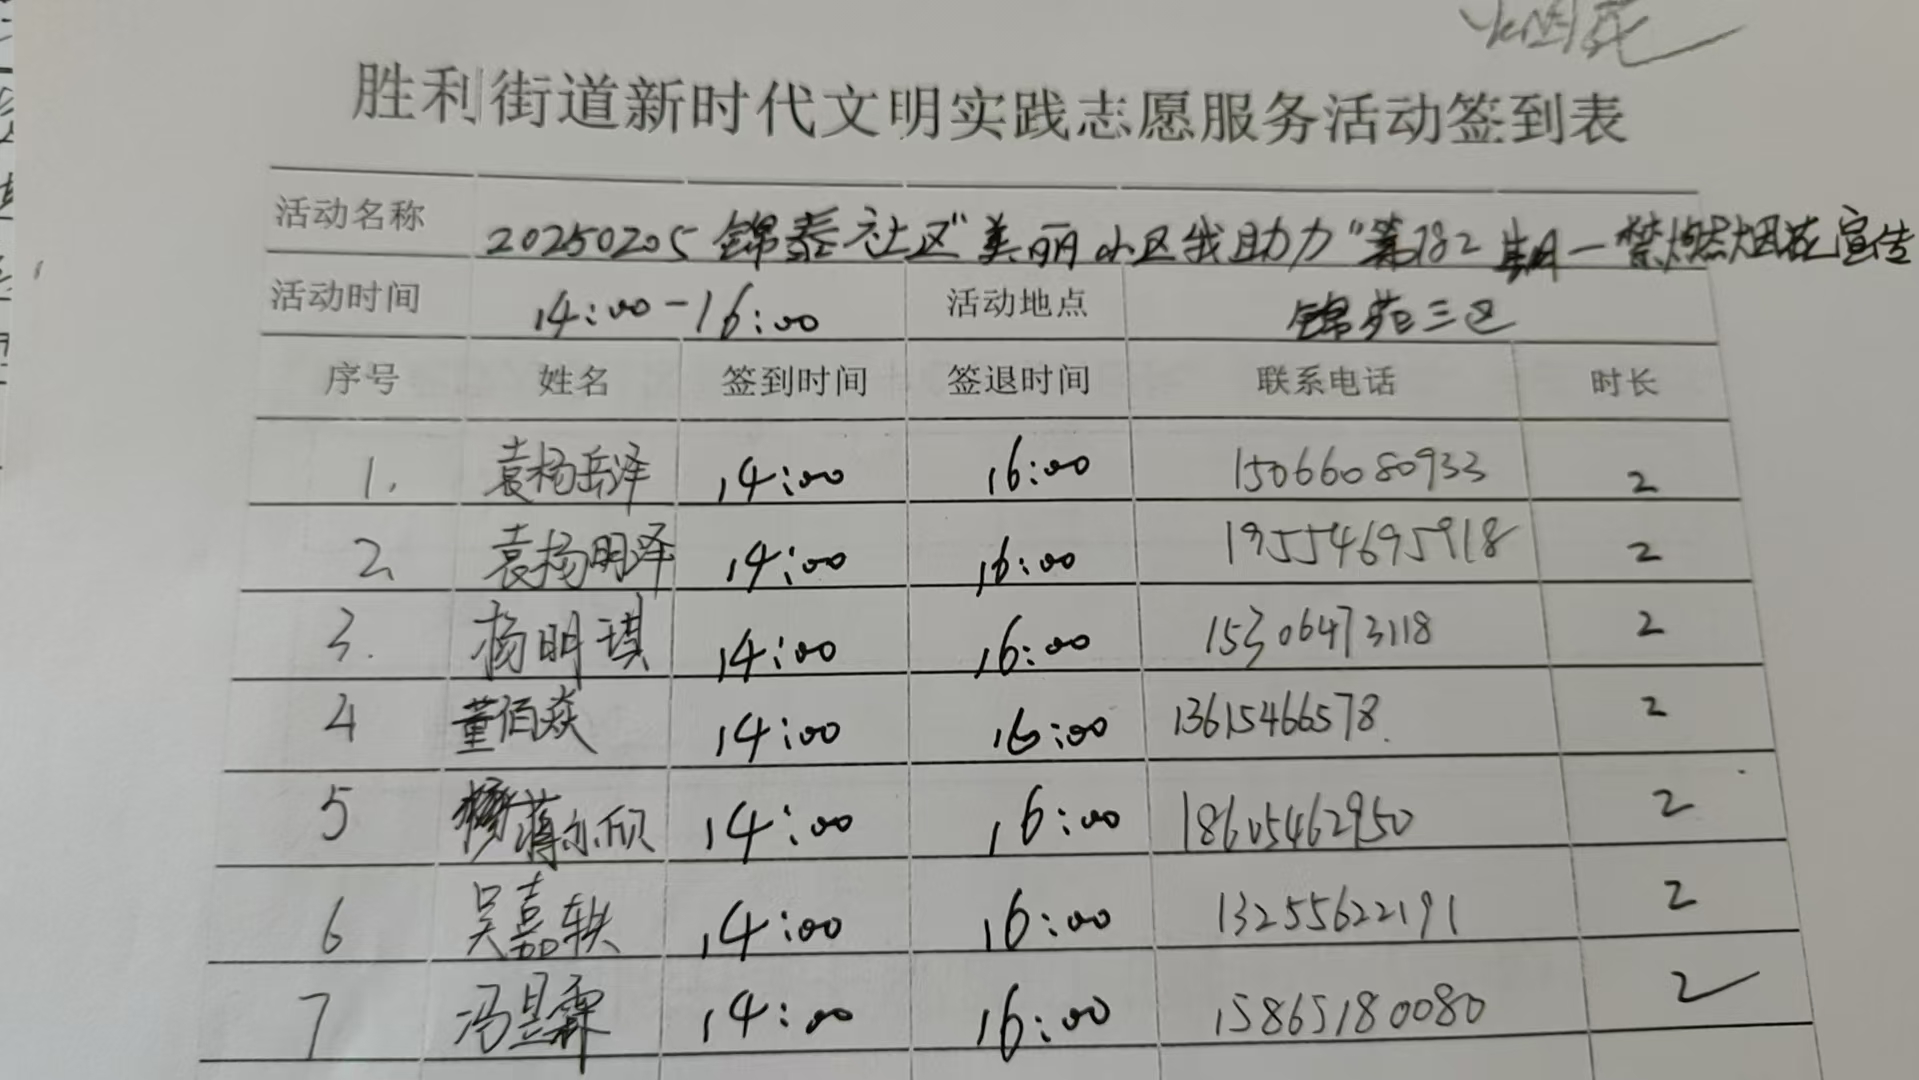 胜利街道新时代文明实践志愿服务活动签到表
活动名称 20250205锦泰社区"美丽小区我助力"第782期一禁燃烟花宣传
活动时间 14:00-16:00 活动地点 锦苑三区
序号 姓名 签到时间 签退时间 联系电话 时长
1. 袁杨岳泽 14:00 16:00 15066080933 2
2、 袁杨明泽 14:00 16:00 19554695918 2
3. 杨明琪 14:00 16:00 15306473118 2
4 董佰焱 14:00 16:00 13615466578. 2
5 蒋尔欣 14:00 16:00 18605462950 2
6 吴嘉轶 14:00 16:00 13255622191 2
7 冯昱霖 14:00 16:00 15865180080 2